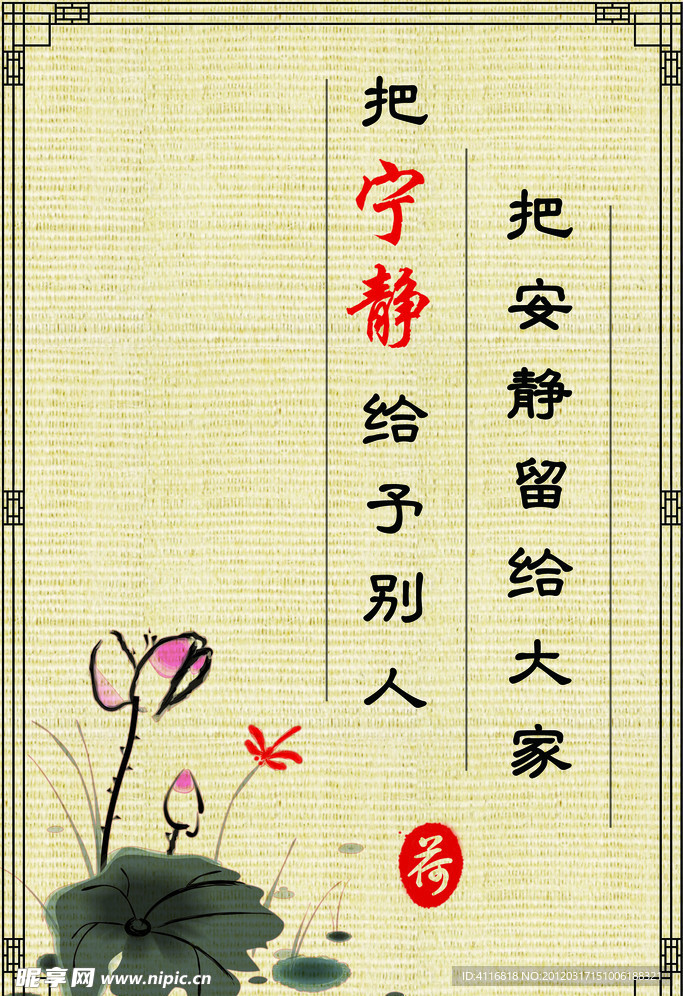 把安静留给大家
把宁静给予别人
荷
昵享网 www.nipic.cn
ID:4116818 NO:20120317151006188321